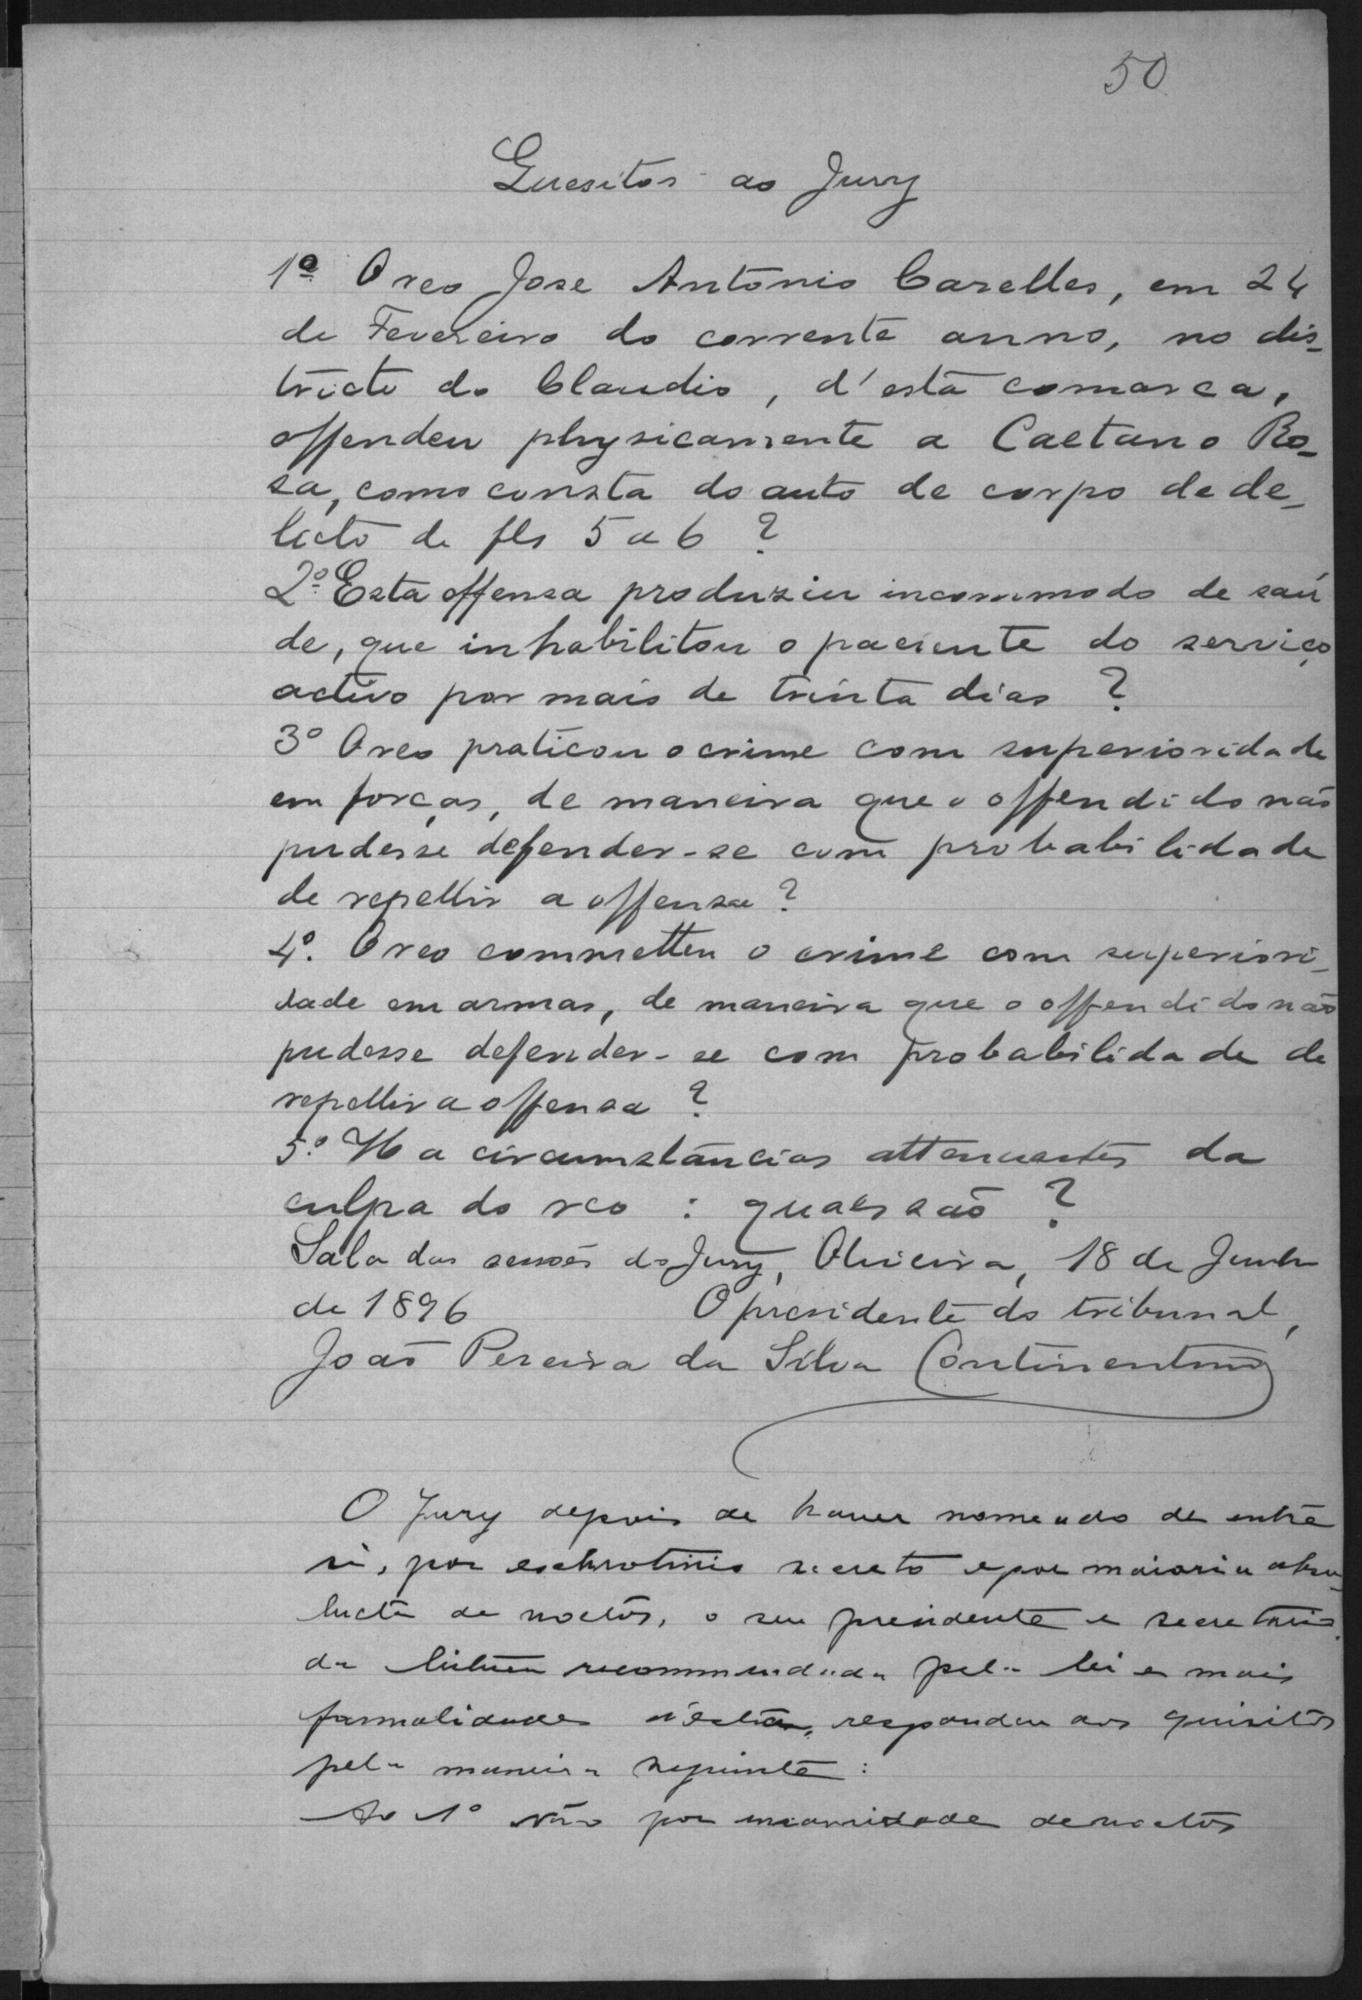 50
Quesitos ao Jury
1º O reo Jose Antonio Carelles, em 24
de Fevereiro do corrente anno, no dis-
tricto do Claudio, d'esta comarca,
offendeu physicamente a Caetano Ro-
sa, como consta do auto de corpo de de-
licto de fls 5 a 6 ?
2º Esta offensa produziu incommodo de saú
de, que inhabilitou o paciente do serviço
activo por mais de trinta dias ?
3º O reo praticou o crime com superioridade
em forças, de maneira que o offendido não
pudesse defender-se com probabilidade
de repellir a offensa ?
4º. O reo commetteu o crime com superiori-
dade em armas, de maneira que o offendido não
pudesse defender-se com probabilidade de
repellir a offensa ?
5º. Ha circumstancias attenuantes da
culpa do reo : quaes são ?
Sala das sessões do Jury, Oliveira, 18 de Junho
de 1896 O presidente do tribunal,
João Pereira da Silva Continentino
O Jury depois de haver nomeado de entre
si, por eschrotinio secreto e por maioria abso-
lucta de voctos, o seu presidente e secretario
da leitura recommendada pela lei e mais
formalidades respondeu aos quisitos
pela maneira seguinte :
Ao 1º não por unanimidade de voctos